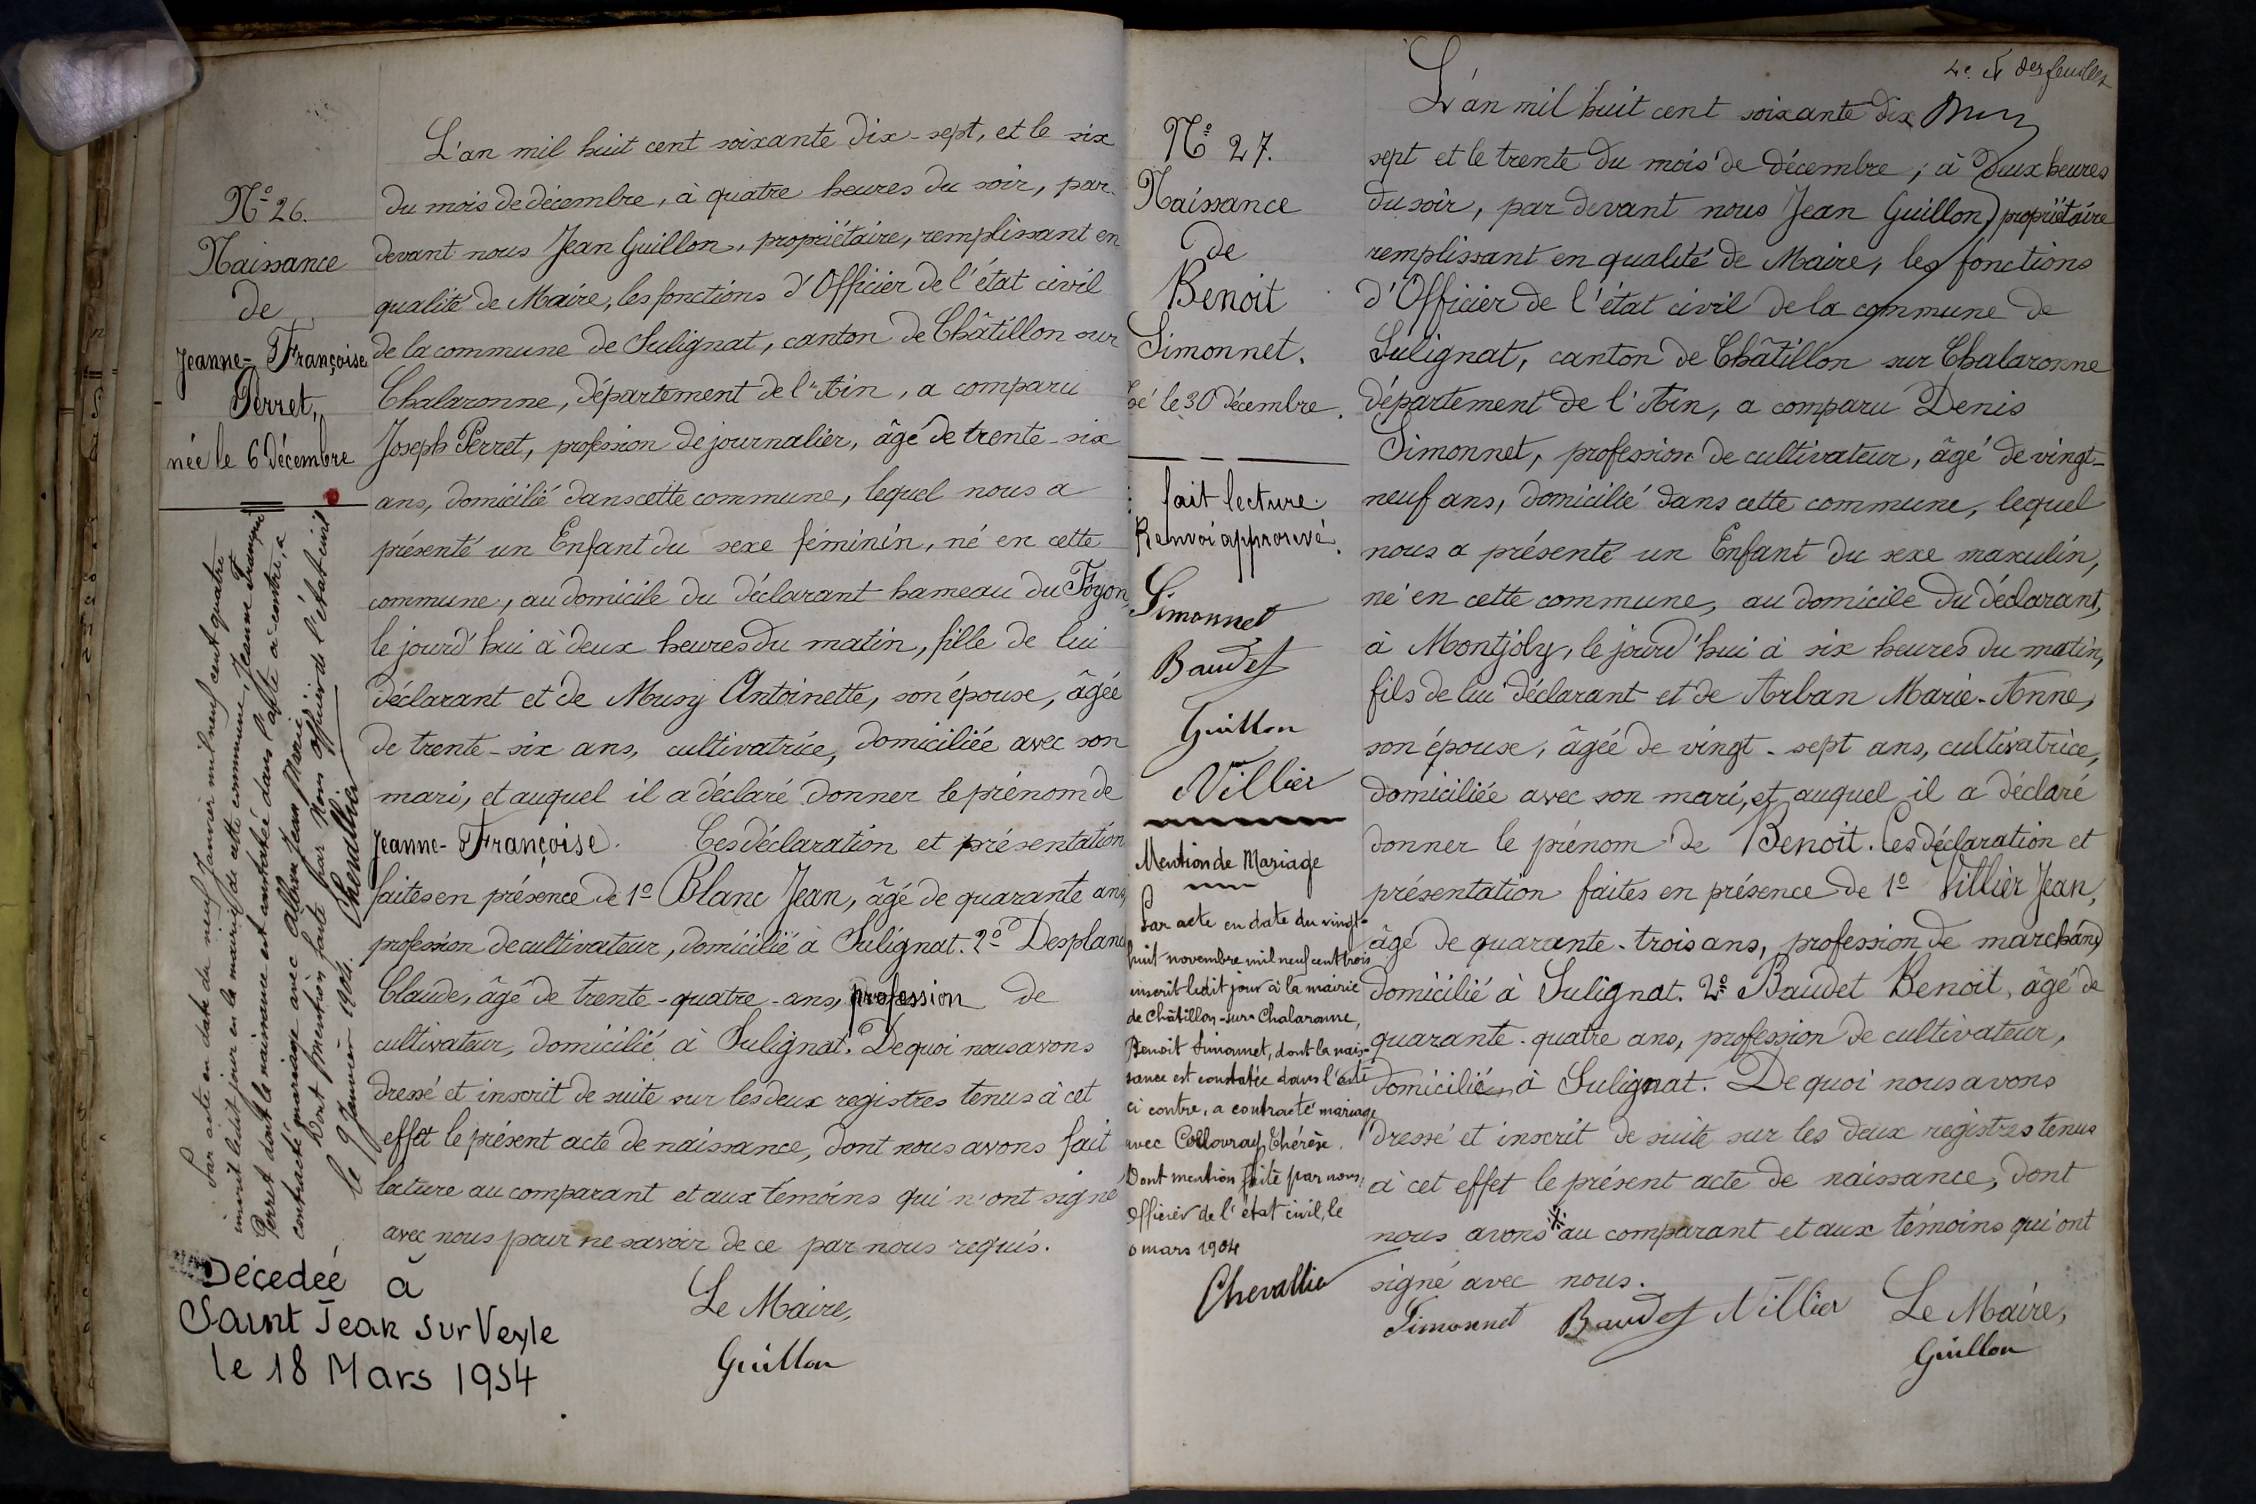 Nº 26.
Naissance
de
Jeanne-Françoise
Perret,
née le 6 décembre
Par acte en date du neuf Janvier mil neuf cent quatre
inscrit ledit jour en la mairie de cette commune, Jeanne Françoise
Perret dont la naissance est constatée dans l'acte ci-contre, a
contracté mariage avec Jean Marie
Dont mention faite par Nous officier de l'état civil
le 9 Janvier 1904. Chevallier
Décedée à
Saint Jean sur Veyle
le 18 Mars 1954
L'an mil huit cent soixante dix-sept, et le six
du mois de décembre, à quatre heures du soir, par
devant nous Jean Guillon, propriétaire, remplissant en
qualité de Maire, les fonctions d'Officier de l'état civil
de la commune de Sulignat, canton de Châtillon sur
Chalaronne, département de l'Ain, a comparu
Joseph Perret, profession de journalier, âgé de trente-six
ans, domicilié dans cette commune, lequel nous a
présenté un Enfant du sexe féminin, né en cette
commune, au domicile du déclarant hameau du Foyon
le jourd'hui à deux heures du matin, fille de lui
déclarant et de Musy Antoinette, son épouse, âgée
de trente-six ans, cultivatrice, domiciliée avec son
mari, et auquel il a déclaré donner le prénom de
Jeanne-Françoise. Ces déclaration et présentation
faites en présence de 1º Blanc Jean, âgé de quarante ans,
profession de cultivateur, domicilié à Sulignat. 2º Desplane
Claude, âgé de trente-quatre-ans, profession de
cultivateur, domicilié à Sulignat. De quoi nous avons
dressé et inscrit de suite sur les deux registres tenus à cet
effet le présent acte de naissance, dont nous avons fait
lecture au comparant et aux témoins qui n'ont signé
avec nous pour ne savoir de ce par nous requis.
Le Maire,
Guillon
Nº 27.
Naissance
de
Benoit
Simonnet.
né le 30 décembre.
fait lecture.
Renvoi approuvé.
Simonnet
Baudet
Guillon
Villier
Mention de Mariage
Par acte en date du vingt-
huit novembre mil neuf cent trois
inscrit ledit jour à la mairie
de Châtillon-sur-Chalaronne,
Benoit Simonnet, dont la nais-
sance est constatée dans l'acte
ci contre, a contracté mariage
avec Collovray Thérèse.
Dont mention faite par nous,
Officier de l'état civil, le
mars 1904
Chevallier
feuillet
L'an mil huit cent soixante dix
sept et le trente du mois de décembre, à deux heures
du soir, par devant nous Jean Guillon, propriétaire
remplissant en qualité de Maire, les fonctions
d'Officier de l'état civil de la commune de
Sulignat, canton de Châtillon sur Chalaronne
département de l'Ain, a comparu Denis
Simonnet, profession de cultivateur, âgé de vingt-
neuf ans, domicilié dans cette commune, lequel
nous a présenté un Enfant du sexe masculin,
né en cette commune, au domicile du déclarant,
à Montjoly, le jourd'hui à six heures du matin,
fils de lui déclarant et de Arban Marie-Anne,
son épouse, âgée de vingt-sept ans, cultivatrice,
domiciliée avec son mari, et auquel il a déclaré
donner le prénom de Benoit. Ces déclaration et
présentation faites en présence de 1º Villier Jean,
âgé de quarante-trois ans, profession de marchand
domicilié à Sulignat. 2º Baudet Benoit, âgé de
quarante-quatre ans, profession de cultivateur,
domicilié à Sulignat. De quoi nous avons
dressé et inscrit de suite sur les deux registres tenus
à cet effet le présent acte de naissance, dont
nous avons ※ au comparant et aux témoins qui ont
signé avec nous.
Simonnet Baudet Villier Le Maire,
Guillon